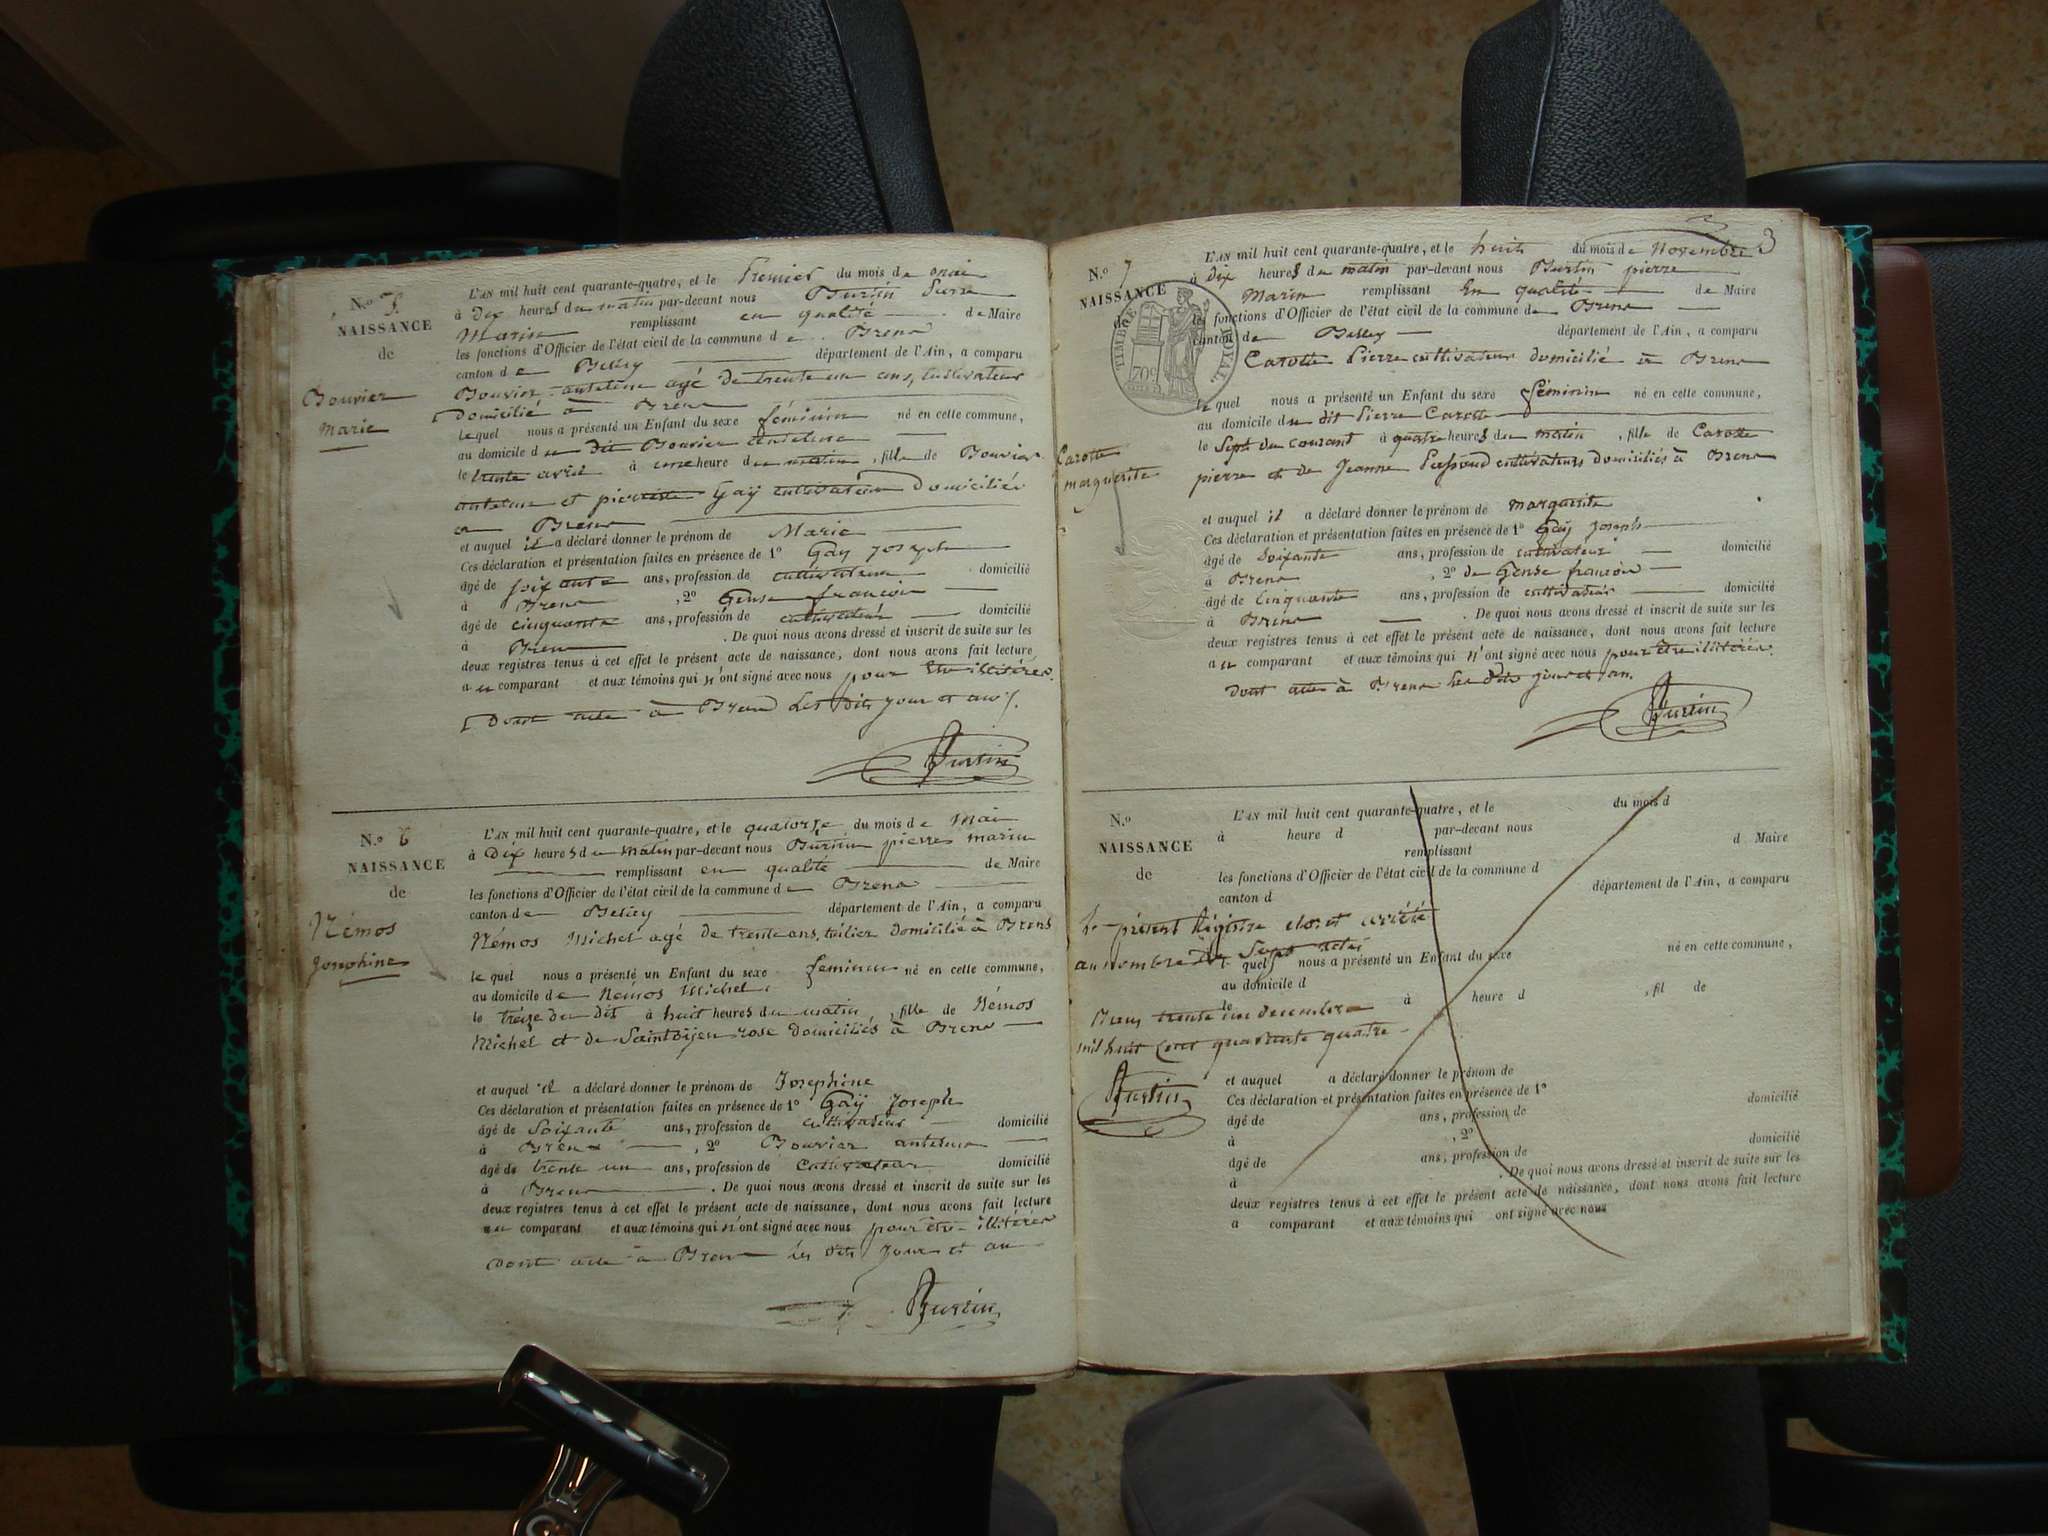 N.o 5.
NAISSANCE
de
Bouvier
Marie
L'AN mil huit cent quarante-quatre, et le Premier du mois de mai
à Dix heures du matin par-devant nous Burtin Pierre
Marin remplissant en qualité de Maire
les fonctions d'Officier de l'état civil de la commune de Brens
canton de Belley département de l'Ain, a comparu
Bouvier antelme agé de trente un ans, cultivateur
Domicilié à Brens
lequel nous a présenté un Enfant du sexe féminin né en cette commune,
au domicile du dit Bouvier antelme
le trente avril à une heure du matin, fille de Bouvier
antelme et pierrette Gaÿ cultivateurs Domiciliés
a Brens
et auquel il a déclaré donner le prénom de Marie
Ces déclaration et présentation faites en présence de 1° Gay Joseph
âgé de soixante ans, profession de cultivateur domicilié
à Brens, 2° Gense françois
âgé de cinquante ans, profession de cultivateur domicilié
à Brens. De quoi nous avons dressé et inscrit de suite sur les
deux registres tenus à cet effet le présent acte de naissance, dont nous avons fait lecture
au comparant et aux témoins qui n'ont signé avec nous pour être illitérés.
Dont acte à Brens les dits jour et an
Burtin
N.o 6
NAISSANCE
de
Némos
Josephine
L'AN mil huit cent quarante-quatre, et le quatorze du mois de Mai
à Dix heures du matin par-devant nous Burtin pierre marin
remplissant en qualité de Maire
les fonctions d'Officier de l'état civil de la commune de Brens
canton de Belley département de l'Ain, a comparu
Némos Michel agé de trente ans, tuilier domicilié à Brens
le quel nous a présenté un Enfant du sexe feminin né en cette commune,
au domicile de Némos Michel
le treize du dit à huit heures du matin, fille de Némos
Michel et de rose domiciliés à Brens
et auquel il a déclaré donner le prénom de Josephine
Ces déclaration et présentation faites en présence de 1° Gaÿ Joseph
âgé de Soixante ans, profession de cultivateur domicilié
à Brens, 2° Bouvier antelme
âgé de trente un ans, profession de Cultivateur domicilié
à Brens. De quoi nous avons dressé et inscrit de suite sur les
deux registres tenus à cet effet le présent acte de naissance, dont nous avons fait lecture
au comparant et aux témoins qui n'ont signé avec nous pour être illitérés
dont acte à Brens les dits Jour et an
Burtin
3
N.o 7
NAISSANCE
TIMBRE ROYAL
70c
Carotte
marguerite
L'AN mil huit cent quarante-quatre, et le huit du mois de Novembre
à Dix heures du matin par-devant nous Burtin pierre
Marin remplissant En qualité de Maire
les fonctions d'Officier de l'état civil de la commune de Brens
canton de Belley département de l'Ain, a comparu
Carotte Pierre cultivateur domicilié à Brens
le quel nous a présenté un Enfant du sexe féminin né en cette commune,
au domicile du dit Pierre Carotte
le Sept du courant à quatre heures du matin, fille de Carotte
pierre et de Jeanne cultivateurs domiciliés à Brens
et auquel il a déclaré donner le prénom de marguerite
Ces déclaration et présentation faites en présence de 1° Gaÿ Joseph
âgé de Soixante ans, profession de cultivateur domicilié
à Brens, 2° de Gense françois
âgé de Cinquante ans, profession de cultivateur domicilié
à Brens. De quoi nous avons dressé et inscrit de suite sur les
deux registres tenus à cet effet le présent acte de naissance, dont nous avons fait lecture
au comparant et aux témoins qui n'ont signé avec nous pour être illitérés.
Dont acte à Brens les dits jour et an.
Burtin
N.o
NAISSANCE
de
L'AN mil huit cent quarante-quatre, et le du mois d
à heure d par-devant nous
remplissant d Maire
les fonctions d'Officier de l'état civil de la commune d
canton d département de l'Ain, a comparu
le présent Régistre clos et arrêté
au nombre de Sept actes
l quel nous a présenté un Enfant du sexe né en cette commune,
au domicile d
le à heure d, fil de
Brens trente un decembre
mil huit cent quarante quatre
Burtin
et auquel a déclaré donner le prénom de
Ces déclaration et présentation faites en présence de 1°
âgé de ans, profession de domicilié
à, 2°
âgé de ans, profession de domicilié
à. De quoi nous avons dressé et inscrit de suite sur les
deux registres tenus à cet effet le présent acte de naissance, dont nous avons fait lecture
a comparant et aux témoins qui ont signé avec nous